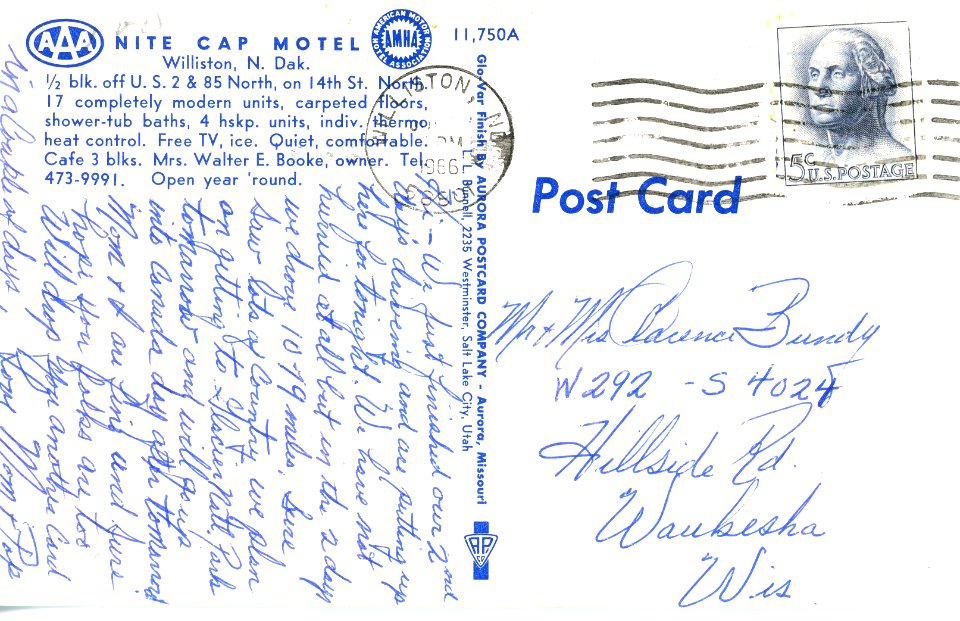 AAA
NITE CAP MOTEL
AMERICAN MOTOR HOTEL ASSOCIATION
AMHA
11,750A
Williston, N. Dak.
½ blk. off U. S. 2 & 85 North, on 14th St. North.
17 completely modern units, carpeted floors,
shower-tub baths, 4 hskp. units, indiv. thermo
heat control. Free TV, ice. Quiet, comfortable.
Cafe 3 blks. Mrs. Walter E. Booke, owner. Tel.
473-9991. Open year 'round.
WILLISTON, ND
PM
1966
5¢ U.S. POSTAGE
Post Card
Glo-Var Finish By AURORA POSTCARD COMPANY - Aurora, Missouri
L. L. Bunnell, 2235 Westminster, Salt Lake City, Utah
APCO
Hi - We just finished our 2nd
days driving and are putting up
here for tonight. We have not
hurried at all but in the 2 days
we drove 1079 miles. Sure
Saw lots of Country. we plan
on getting to Glacier Natl. Park
tomorrow and will go up
into Canada day after tomorrow
Mom & I are fine and sure
hope you folks are too
Will drop you another Card
in a Couple of days,
Love Mom & Pop
Mr & Mrs Clarence Bundy
W 292 - S 4024
Hillside Rd.
Waukesha
Wis